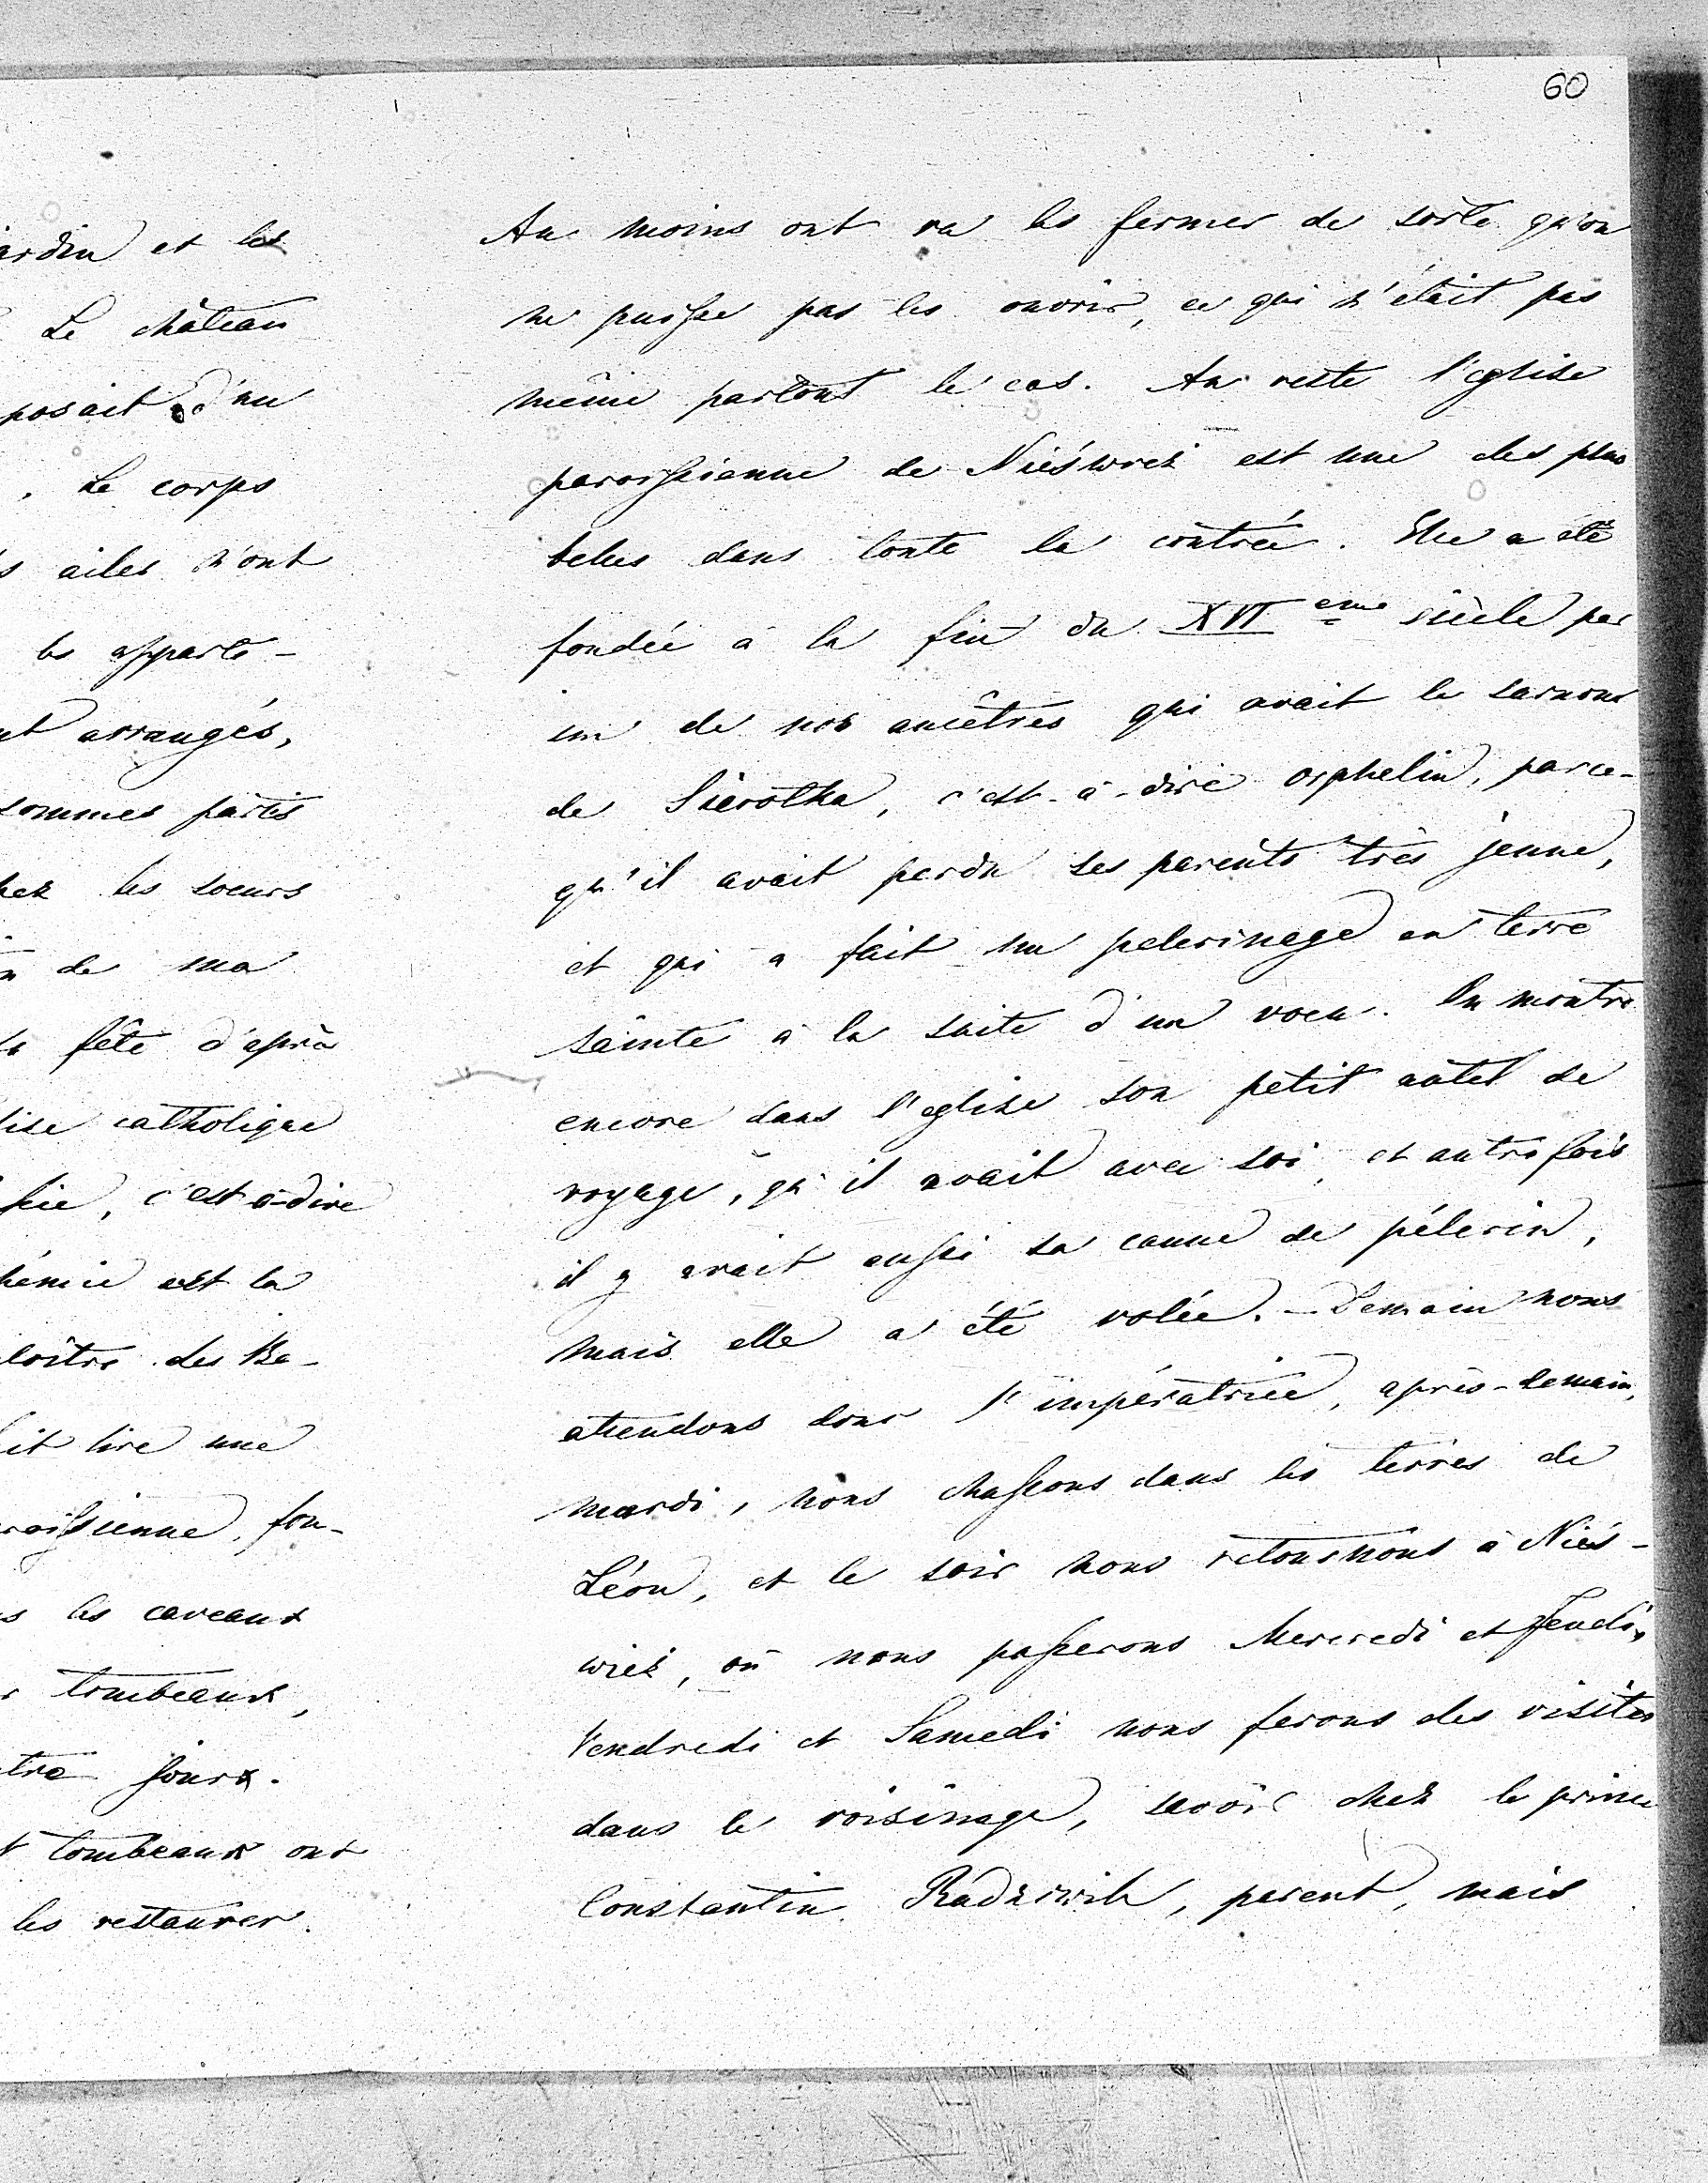 60
ardin et les
Le château
posait d'un
, Le corps
s ailes n'ont
les apparte-
nt arrangés,
sommes partis
hez les soeurs
de ma
fête d'après
lise catholique
c'est-à-dire
hémie est la
loître des Be-
it lire une
roissienne, fon-
s les caveaux
tombeaux,
tre jours.
t tombeaux ont
les restaurer.
Au moins ont va les fermer de sorte qu'on
ne puisse pas les ouvrir, ce qui n'était pas
même partout le cas. Au reste l'eglise
paroissienne de Nieświez est une des plus
belles dans toute la contrée. Elle a été
fondée à la fin du XVI eme siècle par
un de nos ancêtres qui avait le surnom
de Sierotka, c'est-à-dire orphelin, parce-
qu'il avait perdu ses parents très jeune,
et qui a fait un pelerinage en terre
sainte à la suite d'un voeu. On montre
encore dans l'eglise son petit autel de
voyage, qu'il avait avec soi, et autrefois
il y avait aussi sa canne de pélerin,
mais elle a été volée. - Demain nous
attendons donc l'impératrice, après-demain,
mardi, nous chassons dans les terres de
Léon, et le soir nous retournons à Nieś-
wież, où nous passerons Mercredi et Jeudi,
Vendredi et Samedi nous ferons des visites
dans le voisinage, savoir chez le prince
Constantin Radziwill, parent, mais